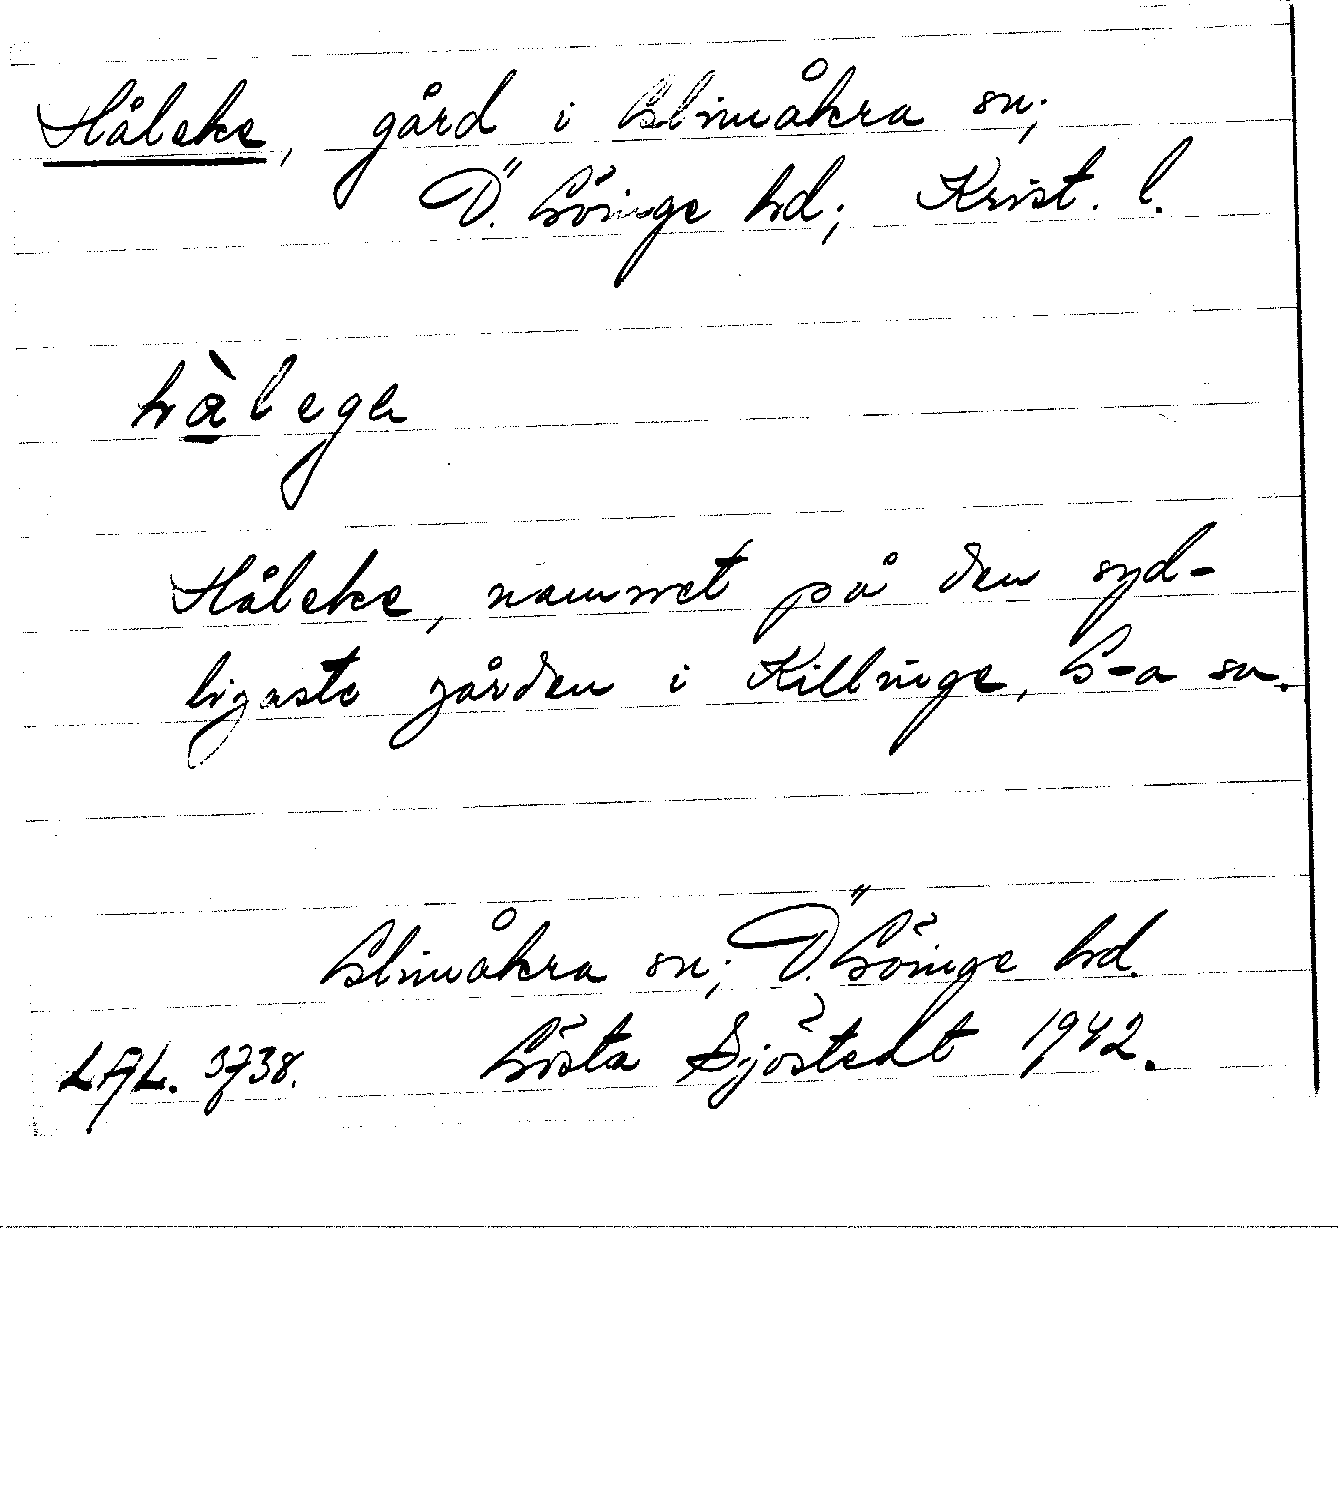 Håleke, gård i Glimåkra sn;
Ö. Göinge hd; Krist. l.
hàlega
Håleke, namnet på den syd-
ligaste gården i Killinge, G-a sn.
Glimåkra sn; Ö. Göinge hd.
LAL. 3738. Gösta Sjöstedt 1942.